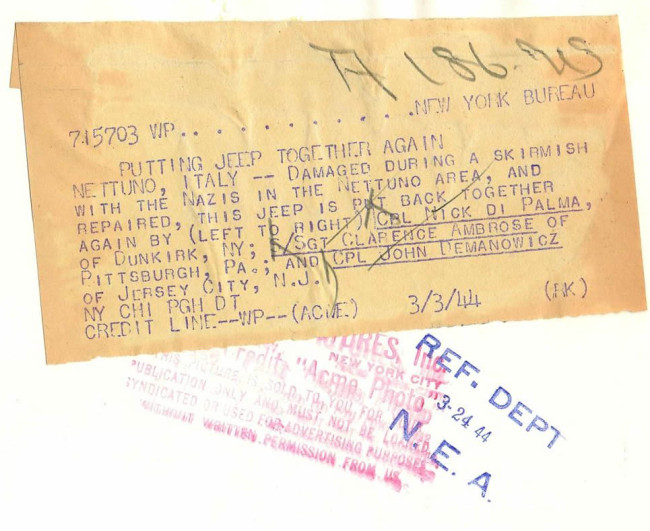 TA 186-203
NEW YORK BUREAU
745703 WP...........
PUTTING JEEP TOGETHER AGAIN
NETTUNO, ITALY -- DAMAGED DURING A SKIRMISH
WITH THE NAZIS IN THE NETTUNO AREA, AND
REPAIRED, THIS JEEP IS PUT BACK TOGETHER
AGAIN BY (LEFT TO RIGHT) CPL NICK DI PALMA,
OF DUNKIRK, NY; S/SGT CLARENCE AMBROSE OF
PITTSBURGH, PA., AND CPL JOHN DEMANOWICZ
OF JERSEY CITY, N.J.
NY CHI PGH DT
CREDIT LINE--WP--(ACME) 3/3/44 (RK)
INC.
NEW YORK CITY
Credit "Acme Photo"
THIS PICTURE IS SOLD TO YOU FOR
PUBLICATION ONLY AND MUST NOT BE LOANED,
SYNDICATED OR USED FOR ADVERTISING PURPOSES
WITHOUT WRITTEN PERMISSION FROM US
REF. DEPT
3-24 44
N. E. A.